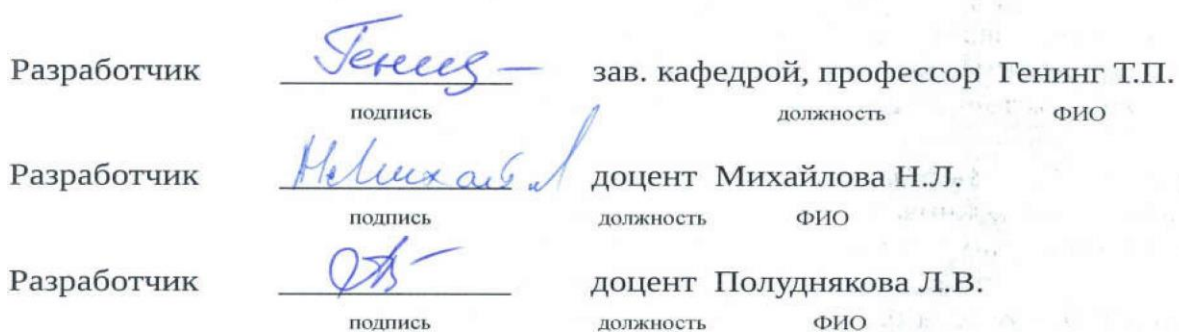 Разработчик Генинг зав. кафедрой, профессор Генинг Т.П.
подпись должность ФИО
Разработчик доцент Михайлова Н.Л.
подпись должность ФИО
Разработчик доцент Полуднякова Л.В.
подпись должность ФИО